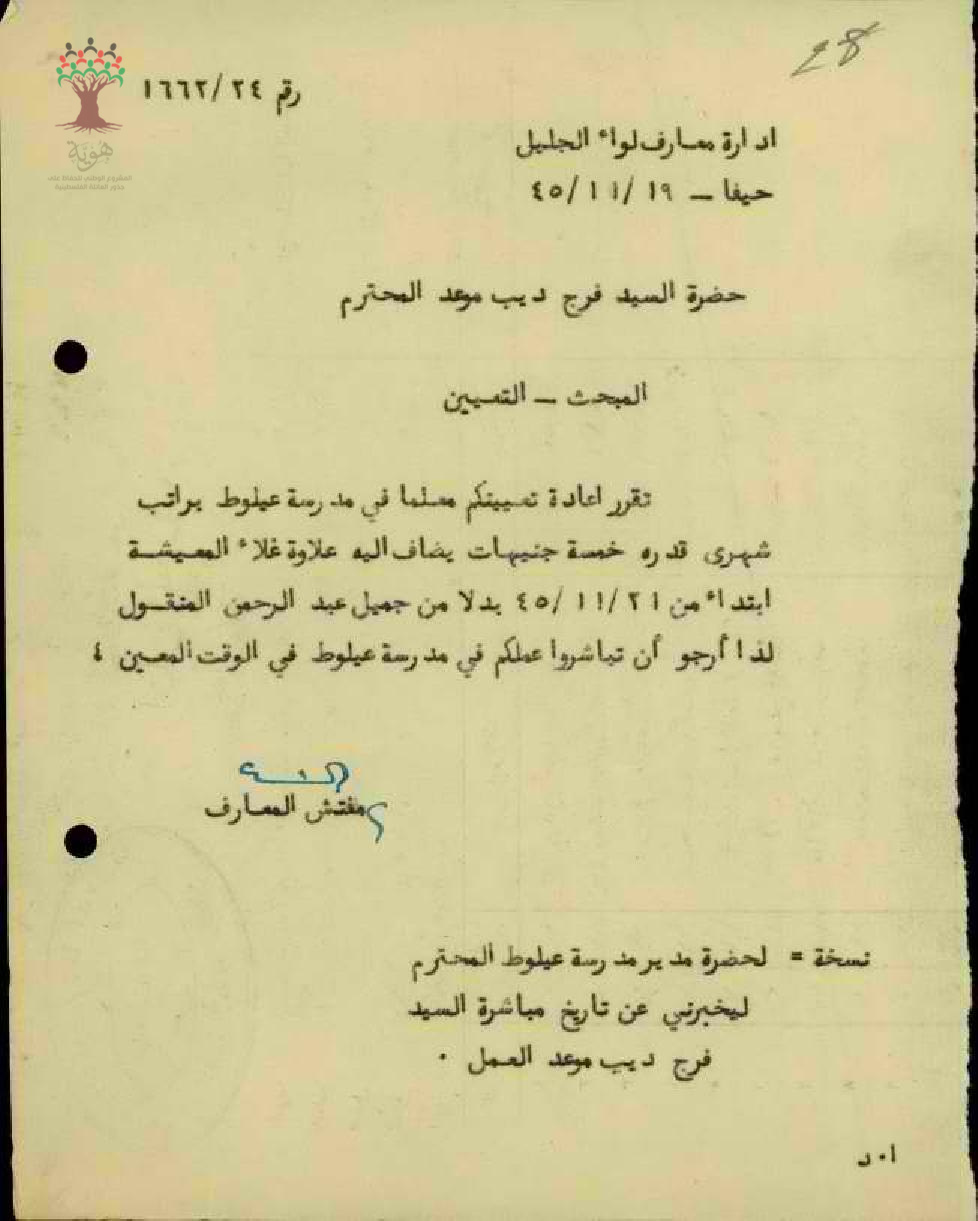 28
رقم ١٦٦٢/٢٤
ادارة معارف لواء الجليل
حيفا ــ ١٩ /١١ /٤٥
حضرة السيد فرج ديب موعد المحترم
المبحث ــ التعيين
تقرر اعادة تعيينكم معلما في مدرسة عيلوط براتب
شهرى قدره خمسة جنيهات يضاف اليه علاوة غلاء المعيشة
ابتداء من ٢١ /١١ /٤٥ بدلا من جميل عبد الرحمن المنقول
لذا أرجو أن تباشروا عملكم في مدرسة عيلوط في الوقت المعين ٤
مفتش المعارف
نسخة = لحضرة مدير مدرسة عيلوط المحترم
ليخبرني عن تاريخ مباشرة السيد
فرج ديب موعد العمل ٠
ا ٠ د
هوية
المشروع الوطني للحفاظ على
جذور العائلة الفلسطينية